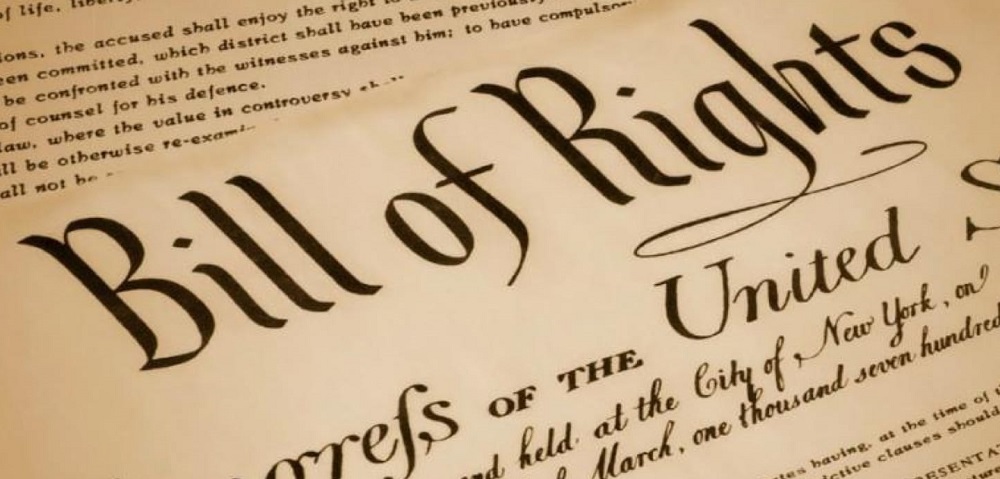 of life,
ions, the accused shall enjoy the right to
een committed, which district shall have been previously
be confronted with the witnesses against him; to have
of counsel for his defence.
law, where the value in controversy
ll be otherwise
all not be
Bill of Rights
United
greſs OF THE
and held at the City of New York, on
March, one thousand seven hundred
having, at the time of
clauses should